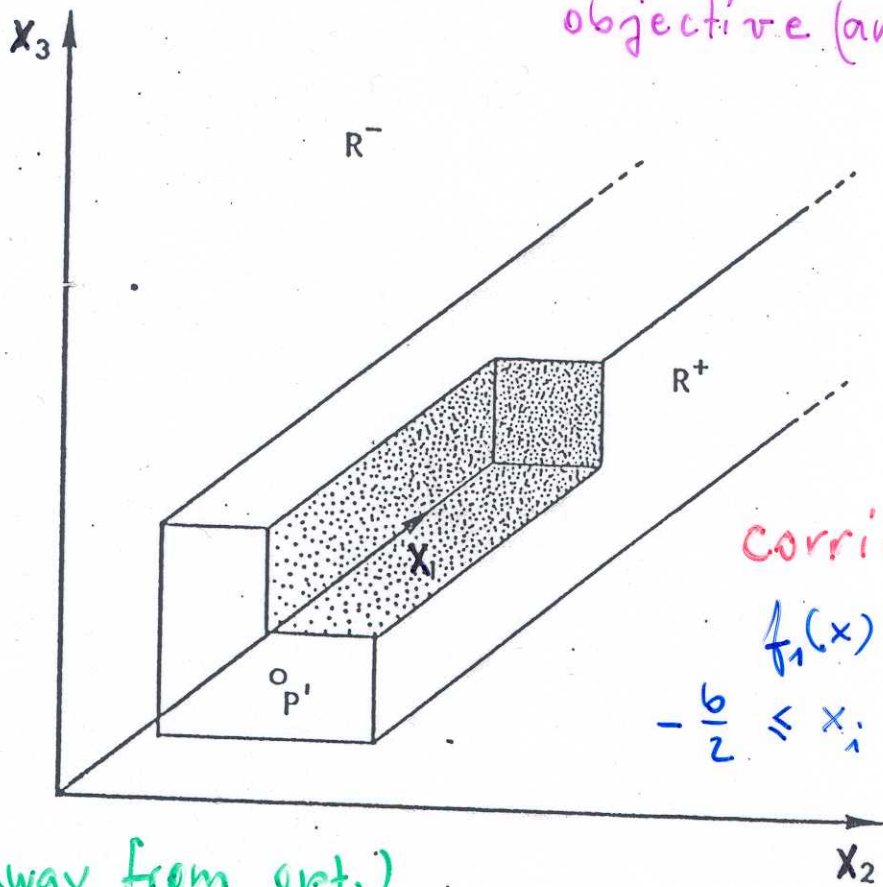 objective (an
X₃
R⁻
R⁺
X₁
corri
f₁(x)
P'
- b/2 ≤ xᵢ
X₂
way from opt.)